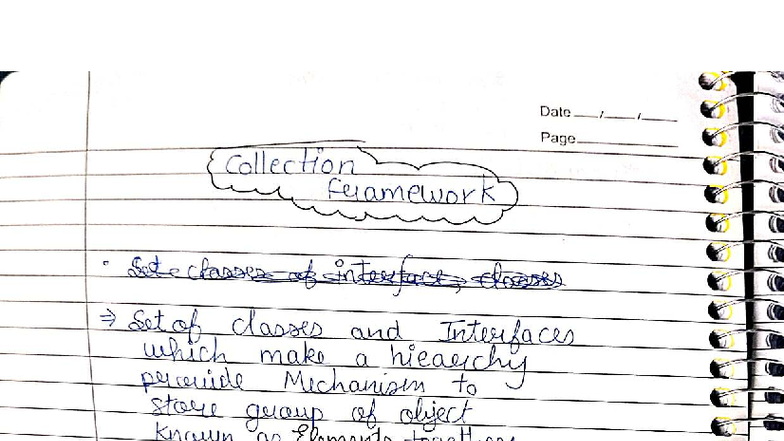 Date __/__/__
Page
Collection
Framework
• Set classes of interface, classes
⇒ Set of classes and Interfaces
which make a hieaechy
provide Mechanism to
store group of object
Known as Elements together